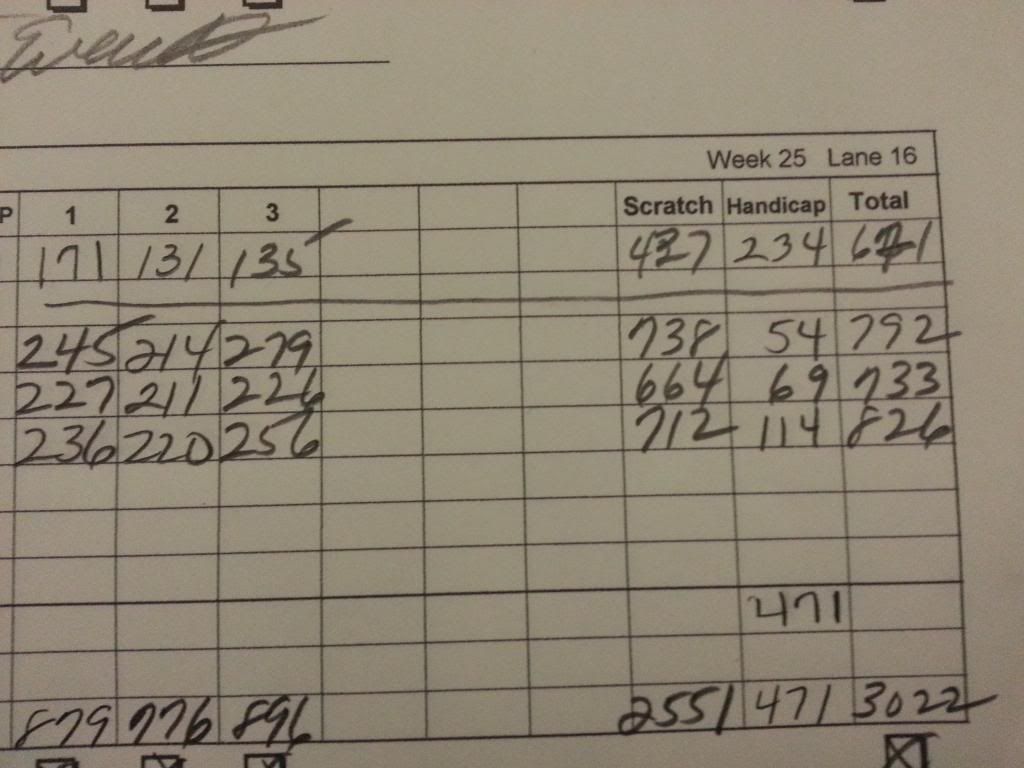 Week 25 Lane 16
P 1 2 3 Scratch Handicap Total
171 131 135 437 234 671
245 214 279 738 54 792
227 211 226 664 69 733
236 220 256 712 114 826
471
879 776 896 2551 471 3022